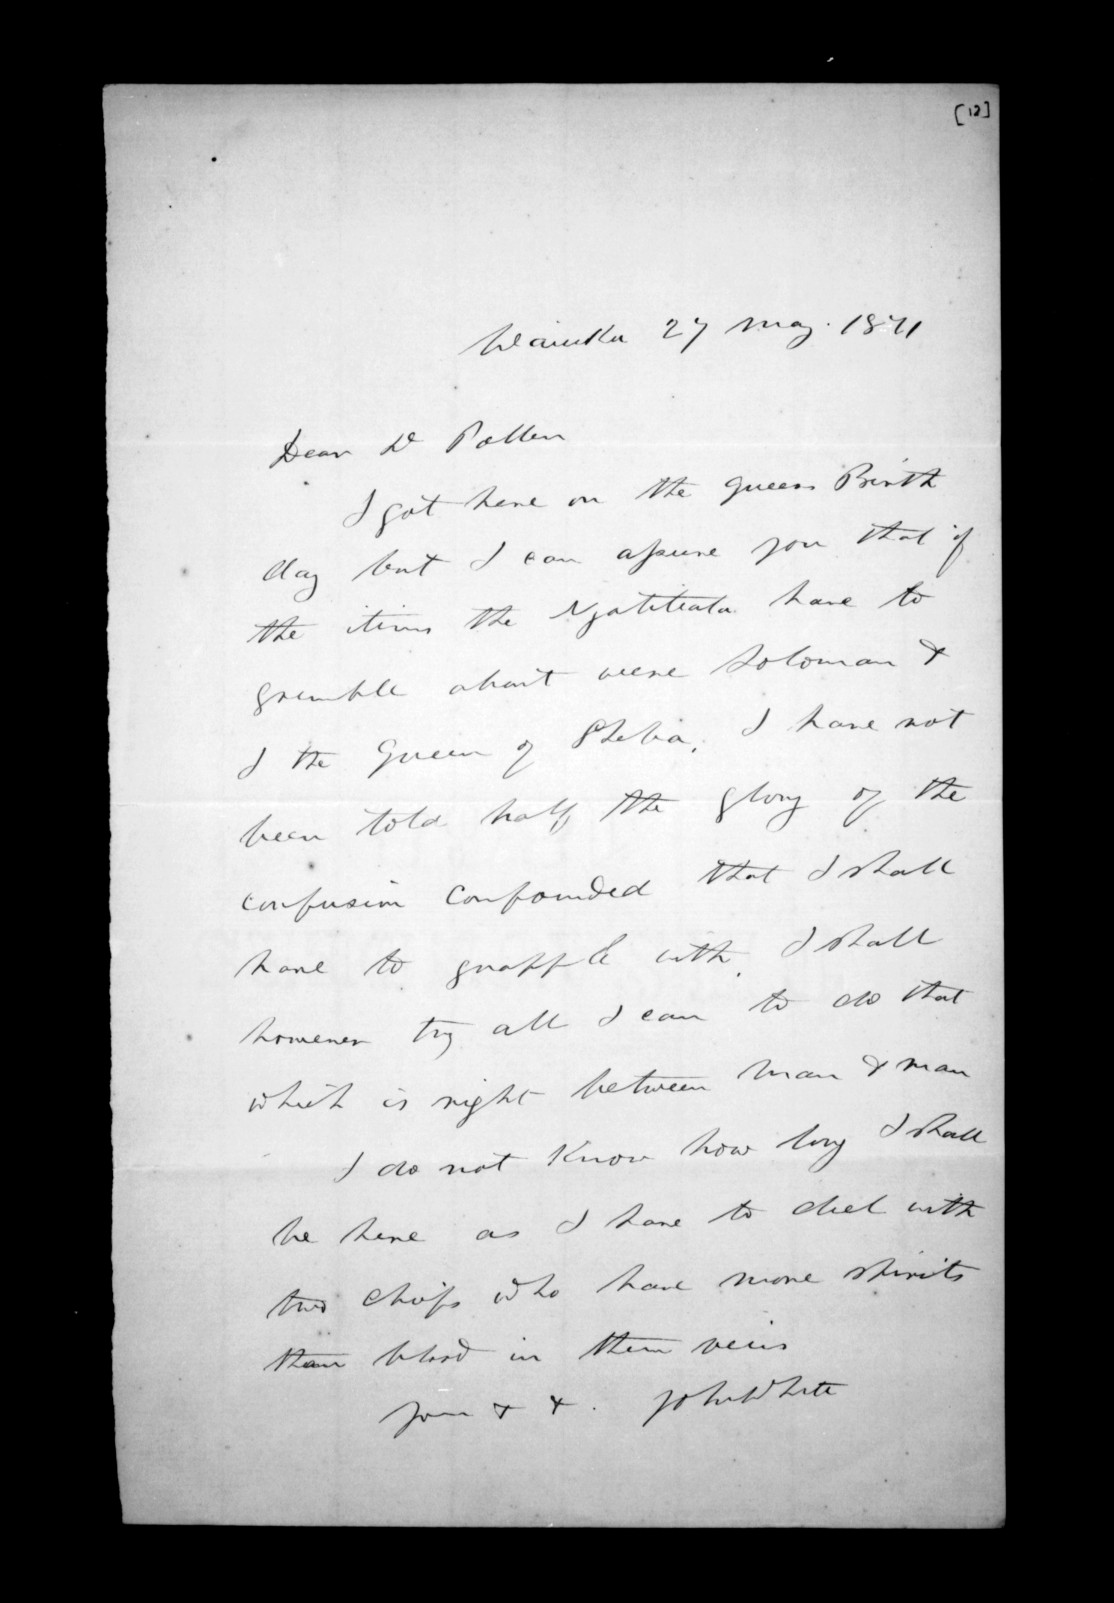 [12]
Waiuku 27 May. 1871
Dear Dr Pollen
I got here on the Queens Birth
day but I can assure you that if
the items the Ngatiteata have to
grumble about were Soloman &
I the Queen of Sheba, I have not
been told half the glory of the
confusion confounded that I shall
have to grapple with, I shall
however try all I can to do that
which is right between man & man
I do not know how long I shall
be here as I have to deel with
two chiefs who have more spirits
than blood in them veins
your & &. John White